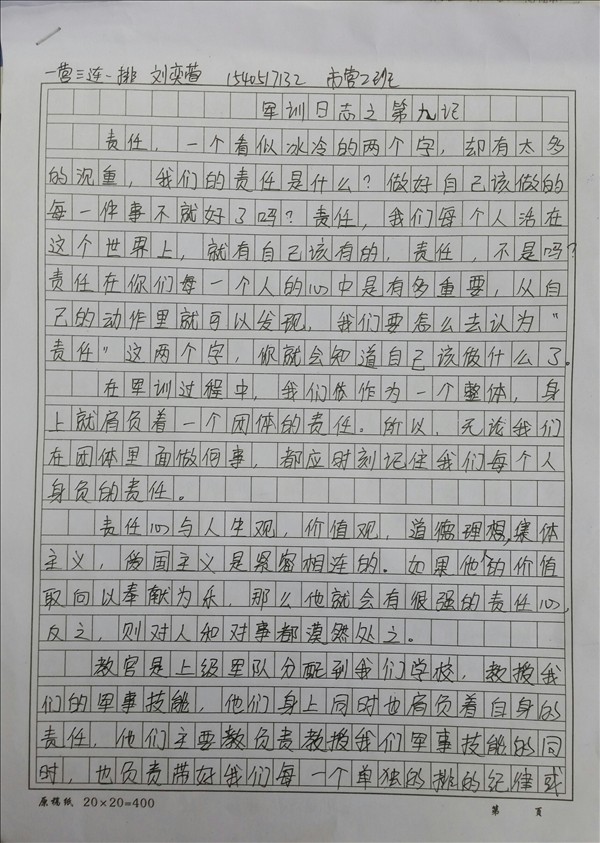 一营三连一排 刘奕萱 1540517132 市营2班
军训日志之第九记
责任，一个看似冰冷的两个字，却有太多
的沉重，我们的责任是什么？做好自己该做的
每一件事不就好了吗？责任，我们每个人活在
这个世界上，就有自己该有的，责任，不是吗？
责任在你们每一个人的心中是有多重要，从自
己的动作里就可以发现，我们要怎么去认为“
责任”这两个字，你就会知道自己该做什么了。
在军训过程中，我们做作为一个整体，身
上就肩负着一个团体的责任。所以，无论我们
在团体里面做何事，都应时刻记住我们每个人
身负的责任。
责任心与人生观，价值观，道德理想，集体
主义，爱国主义是紧密相连的。如果他的价值
取向以奉献为乐，那么他就会有很强的责任心，
反之，则对人和对事都漠然处之。
教官是上级军队分配到我们学校，教授我
们的军事技能，他们身上同时也肩负着自身的
责任，他们主要教负责教授我们军事技能的同
时，也负责带好我们每一个单独的排的纪律或
原稿纸 20×20=400 第 页